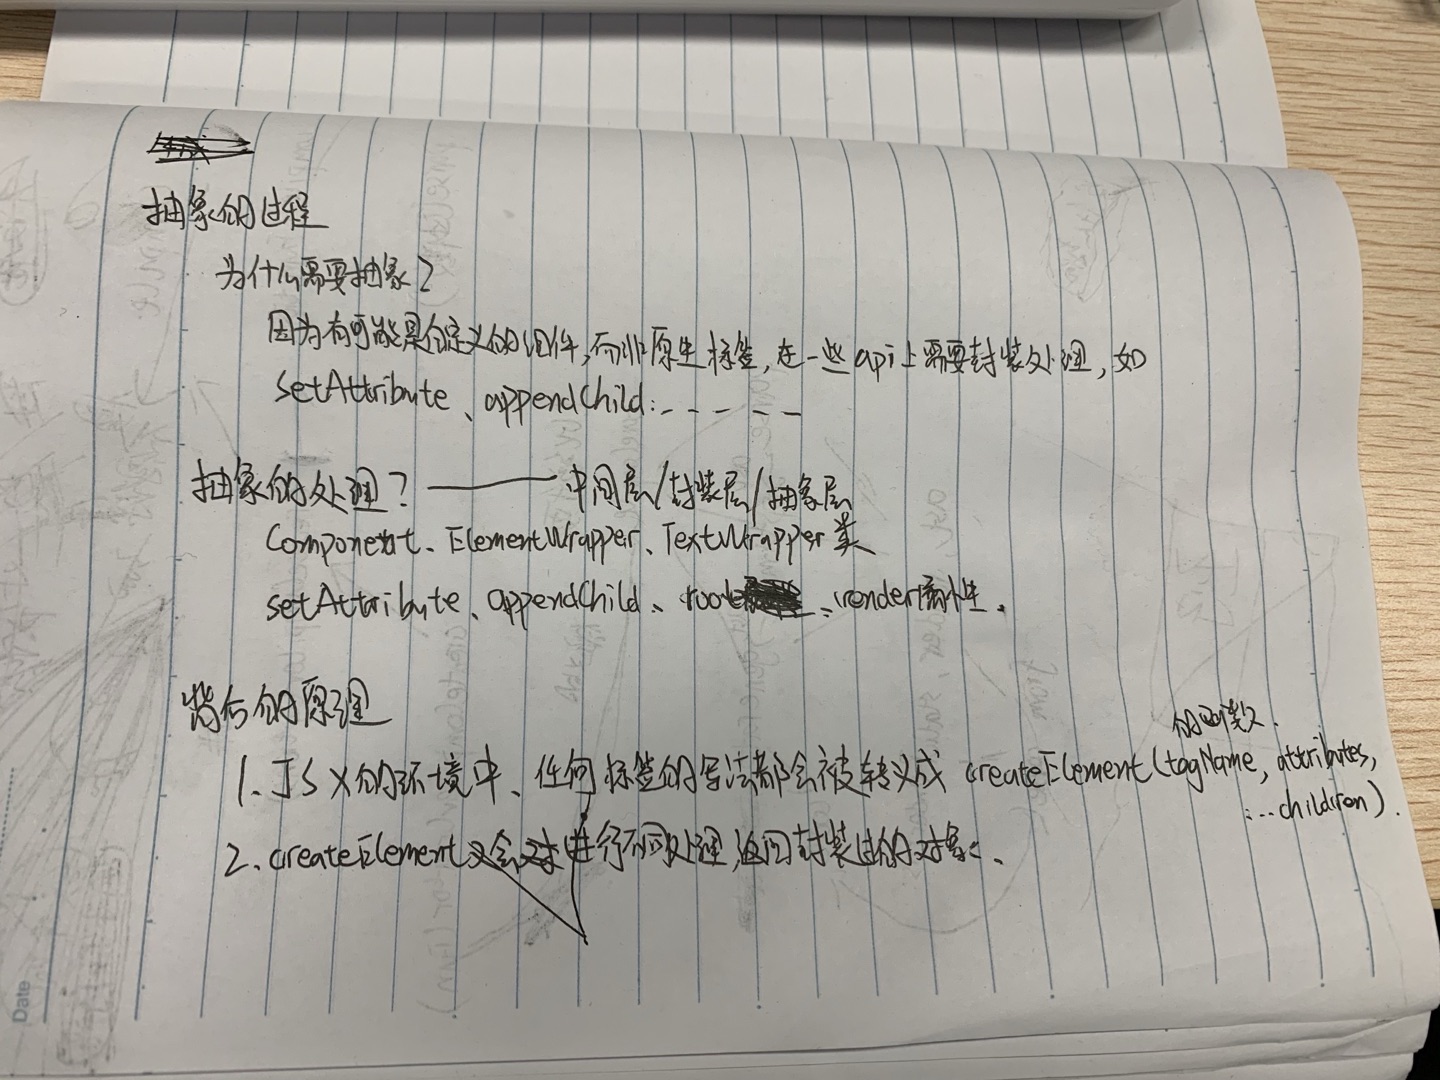 抽象的过程
为什么需要抽象?
因为有可能是自定义的组件,而非原生标签,在一些api上需要封装处理,如
setAttribute、appendChild:-----
抽象的处理? —— 中间层/封装层/抽象层
Component、ElementWrapper、TextWrapper类
setAttribute、appendChild、root、render属性.
背后的原理
的函数.
1. JSX的环境中、任何标签的写法都会被转义成 createElement(tagName, attributes,
...children).
2. createElement又会对进行不同处理,返回封装过的对象、
Date